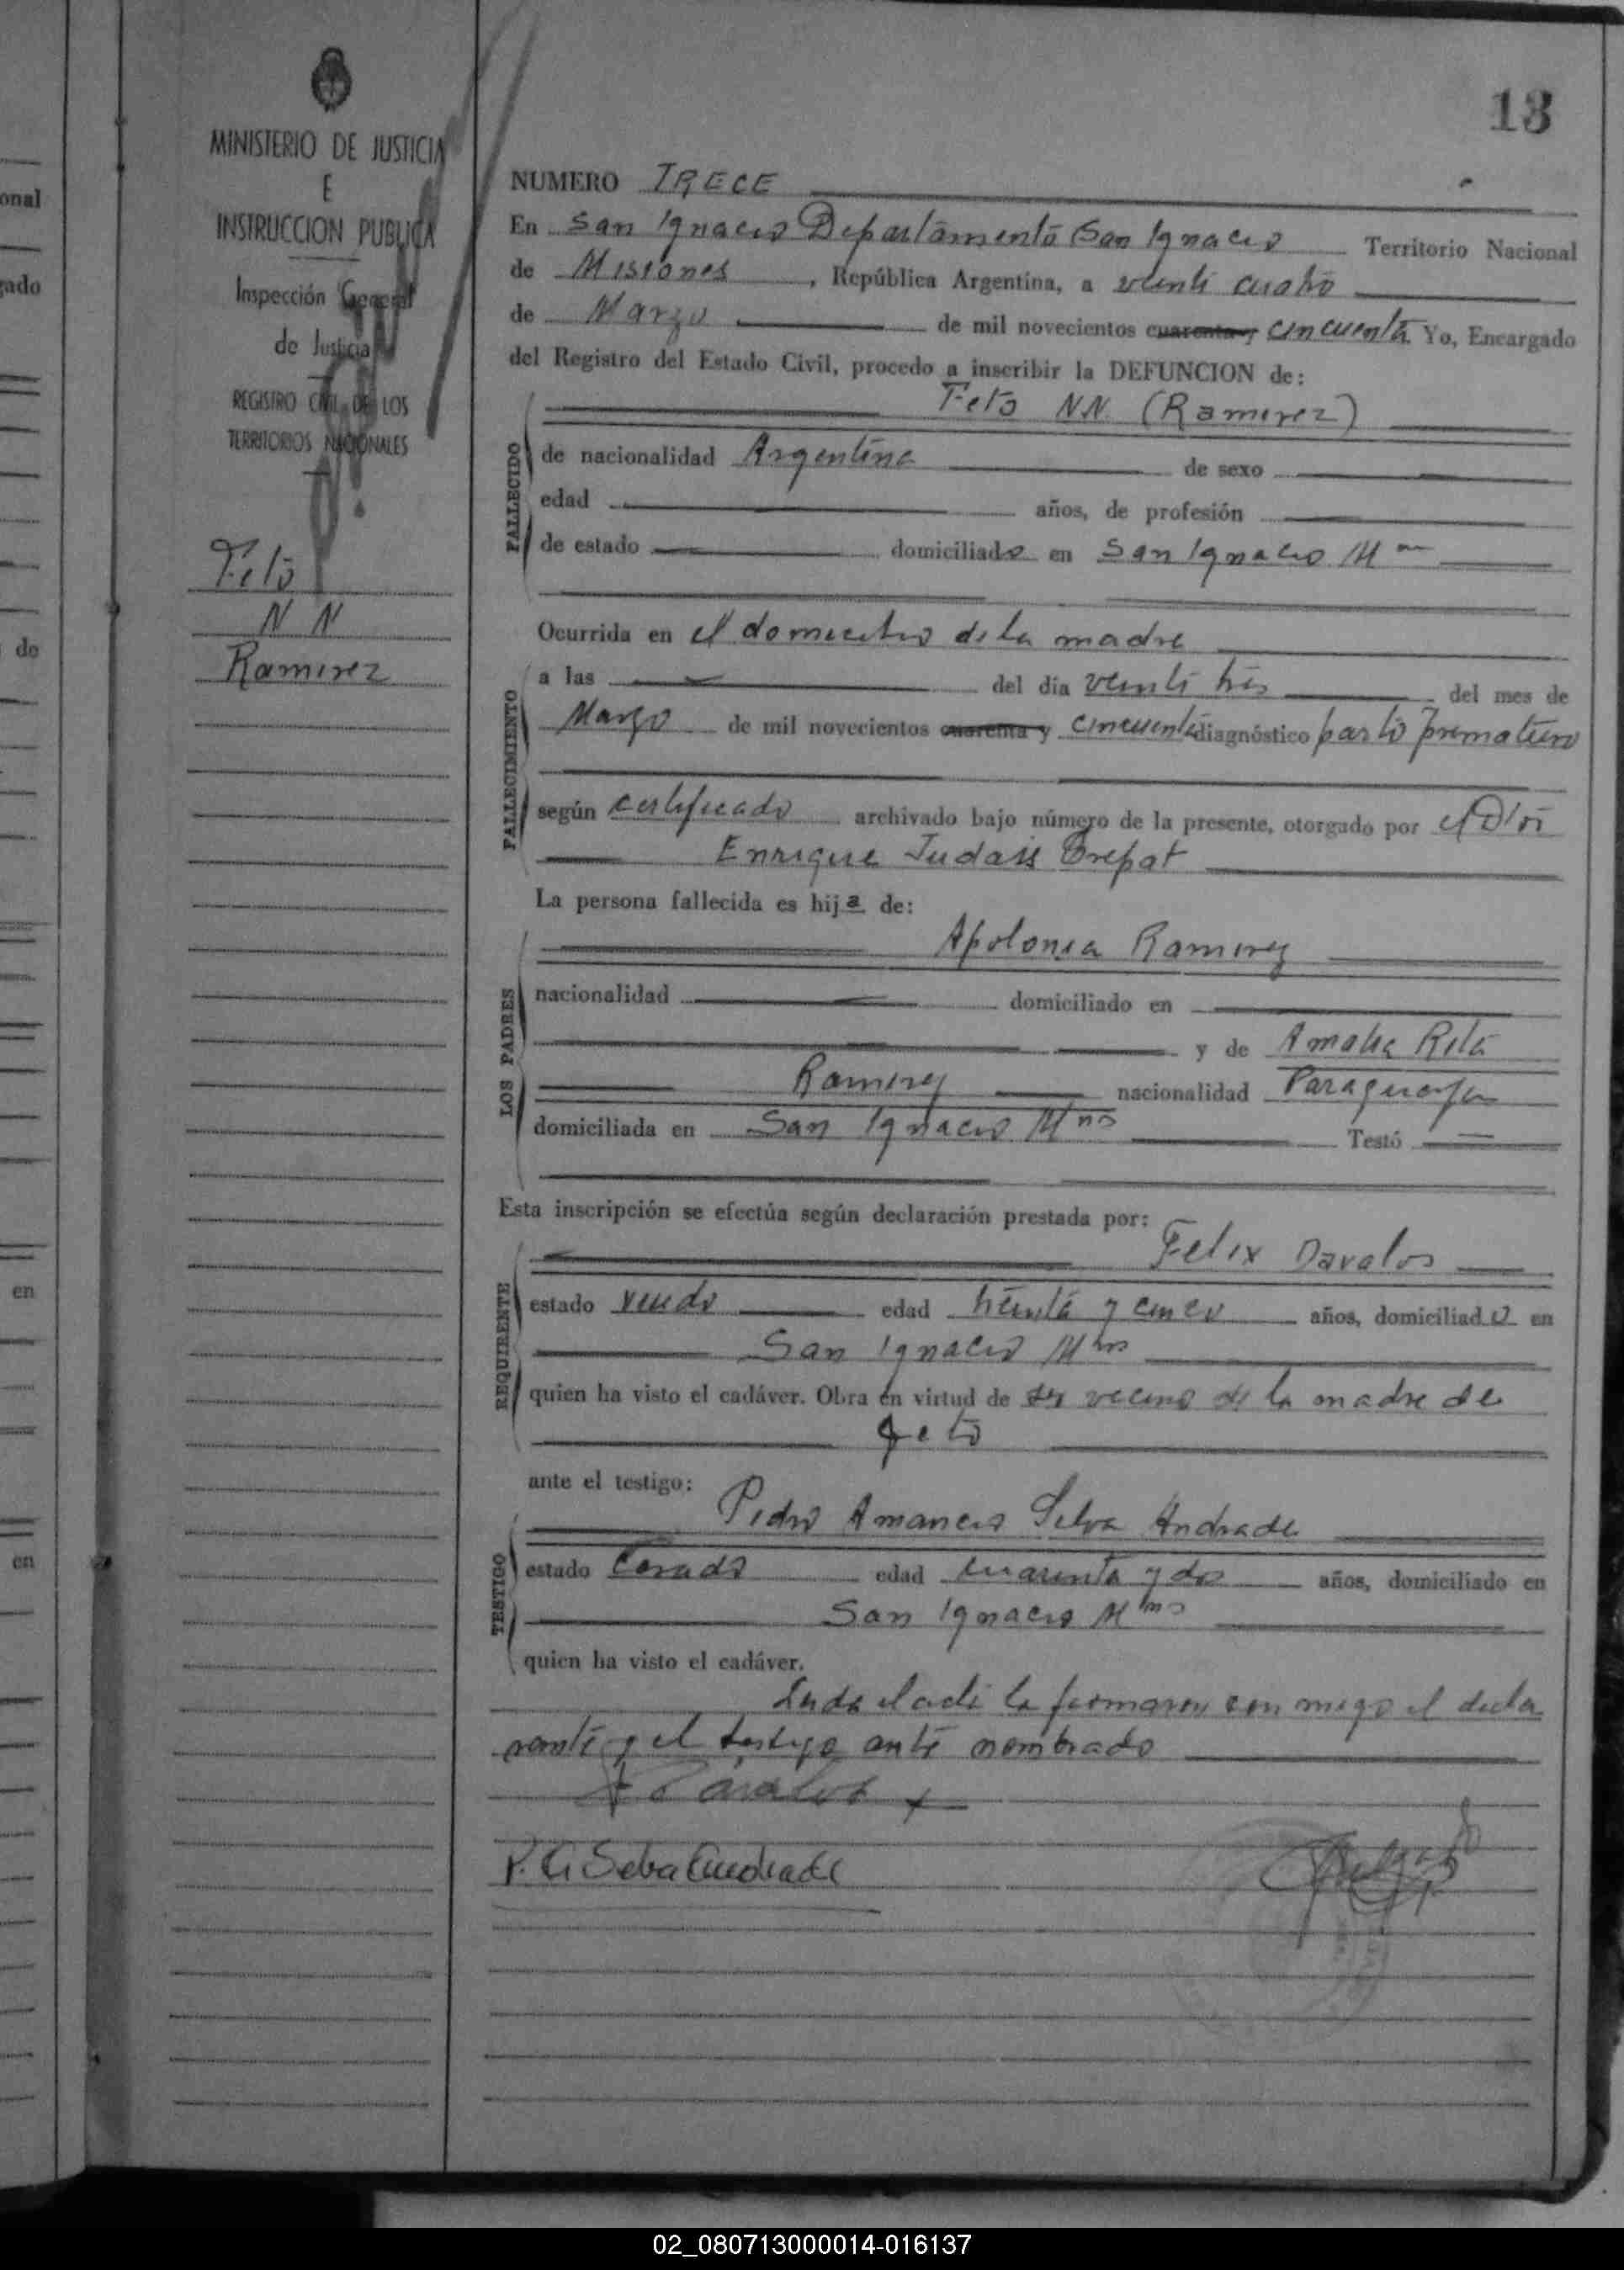 13
MINISTERIO DE JUSTICIA
E
INSTRUCCION PUBLICA
Inspección General
de Justicia
REGISTRO CIVIL DE LOS
TERRITORIOS NACIONALES
Feto
N N
Ramirez
NUMERO TRECE
En San Ignacio Departamento San Ignacio Territorio Nacional
de Misiones, República Argentina, a veinti cuatro
de Marzo de mil novecientos cuarenta y cincuenta Yo, Encargado
del Registro del Estado Civil, procedo a inscribir la DEFUNCION de:
Feto N.N. (Ramirez)
FALLECIDO
de nacionalidad Argentina de sexo
edad años, de profesión
de estado domiciliado en San Ignacio M
Ocurrida en el domicilio de la madre
FALLECIMIENTO
a las del día veinti tres del mes de
Marzo de mil novecientos cuarenta y cincuenta diagnóstico parto prematuro
según certificado archivado bajo número de la presente, otorgado por el
Enrique Judais Trepat
La persona fallecida es hija de:
LOS PADRES
Apolonia Ramirez
nacionalidad domiciliado en
y de Amalia Rita
Ramirez nacionalidad Paraguaya
domiciliada en San Ignacio Mnes Testó
Esta inscripción se efectúa según declaración prestada por:
REQUIRENTE
Felix Davalos
estado viudo edad treinta y cinco años, domiciliado en
San Ignacio Mnes
quien ha visto el cadáver. Obra en virtud de ser vecino de la madre de
feto
ante el testigo:
TESTIGO
Pedro Amancio Silva Andrade
estado Casado edad cuarenta y dos años, domiciliado en
San Ignacio Mnes
quien ha visto el cadáver.
Leida el acta la firmaron con migo el decla
rante y el testigo ante nombrado
F Davalos
P. A Silva Andrade
onal
gado
de
en
en
02_080713000014-016137